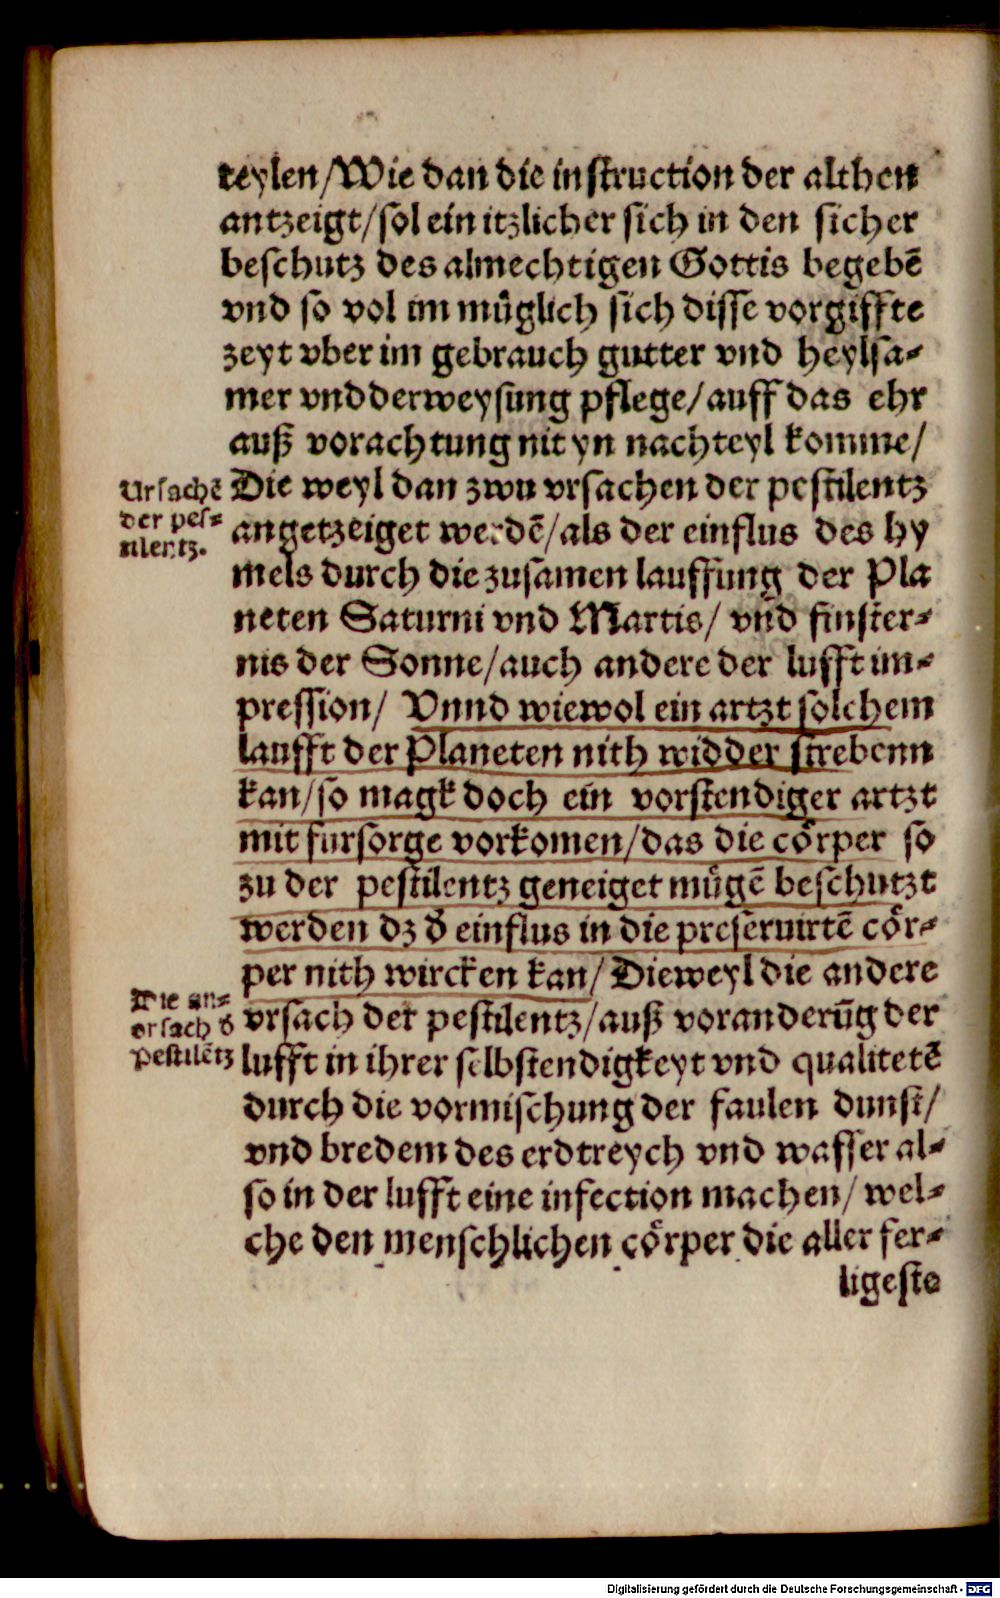 teylen/Wie dan die instruction der althen
antzeigt/sol ein itzlicher sich in den sicher
beschutz des almechtigen Gottis begebē
vnd so vol im mŭglich sich disse vorgiffte
zeyt vber im gebrauch gutter vnd heylsa-
mer vndderweysung pflege/auff das ehr
auß vorachtung nit yn nachteyl komme/
Ursachē
der pes-
tilentz.
Die weyl dan zwu vrsachen der pestilentz
angetzeiget werdē/als der einflus des hy
mels durch die zusamen lauffung der Pla
neten Saturni vnd Martis/ vnd finster-
nis der Sonne/auch andere der lufft im-
pression/ Vnnd wiewol ein artzt solchem
laufft der Planeten nith widder strebenn
kan/so magk doch ein vorstendiger artzt
mit fursorge vorkomen/das die cörper so
zu der pestilentz geneiget mŭgē beschutzt
werden dz d̕ einflus in die preseruirtē cör-
per nith wircken kan/Dieweyl die andere
Die an-
vrsach d̕
pestilētz
vrsach der pestilentz/auß voranderūg der
lufft in ihrer selbstendigkeyt vnd qualitetē
durch die vormischung der faulen dunst/
vnd bredem des erdtreych vnd wasser al-
so in der lufft eine infection machen/ wel-
che den menschlichen cörper die aller fer-
ligeste
Digitalisierung gefördert durch die Deutsche Forschungsgemeinschaft - DFG